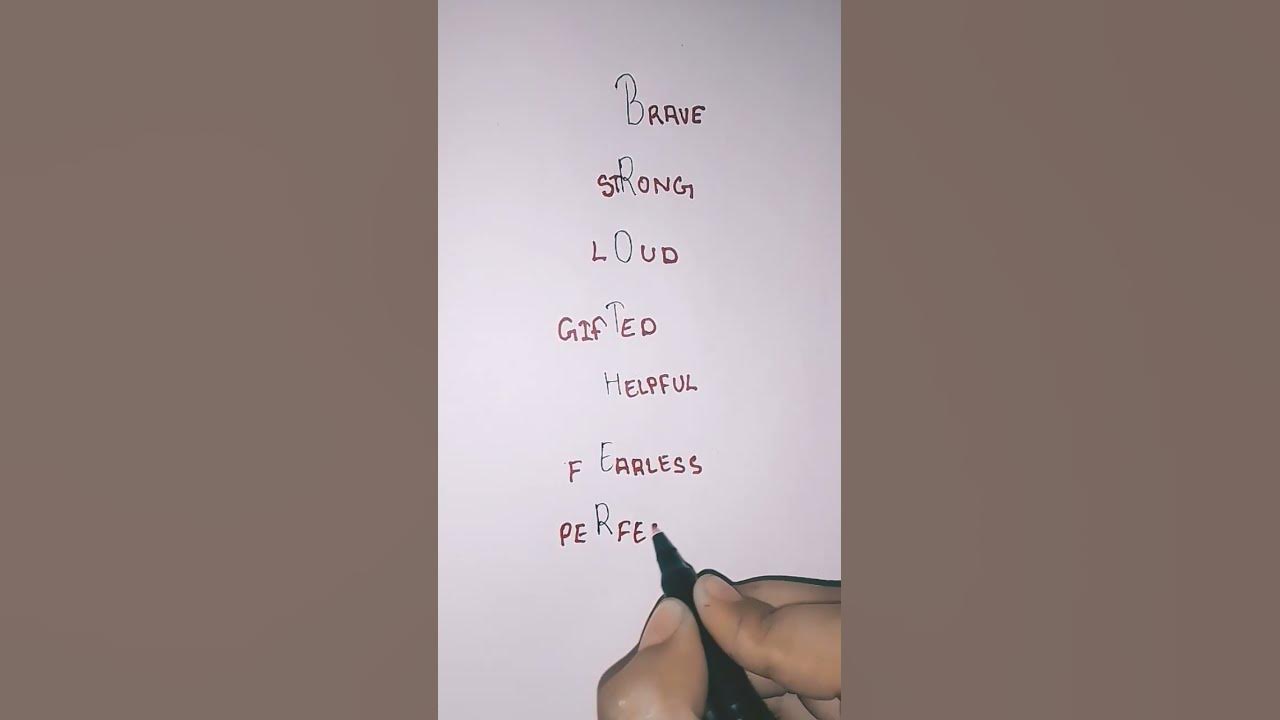 BRAVE
STRONG
LOUD
GIFTED
HELPFUL
FEARLESS
PERFE